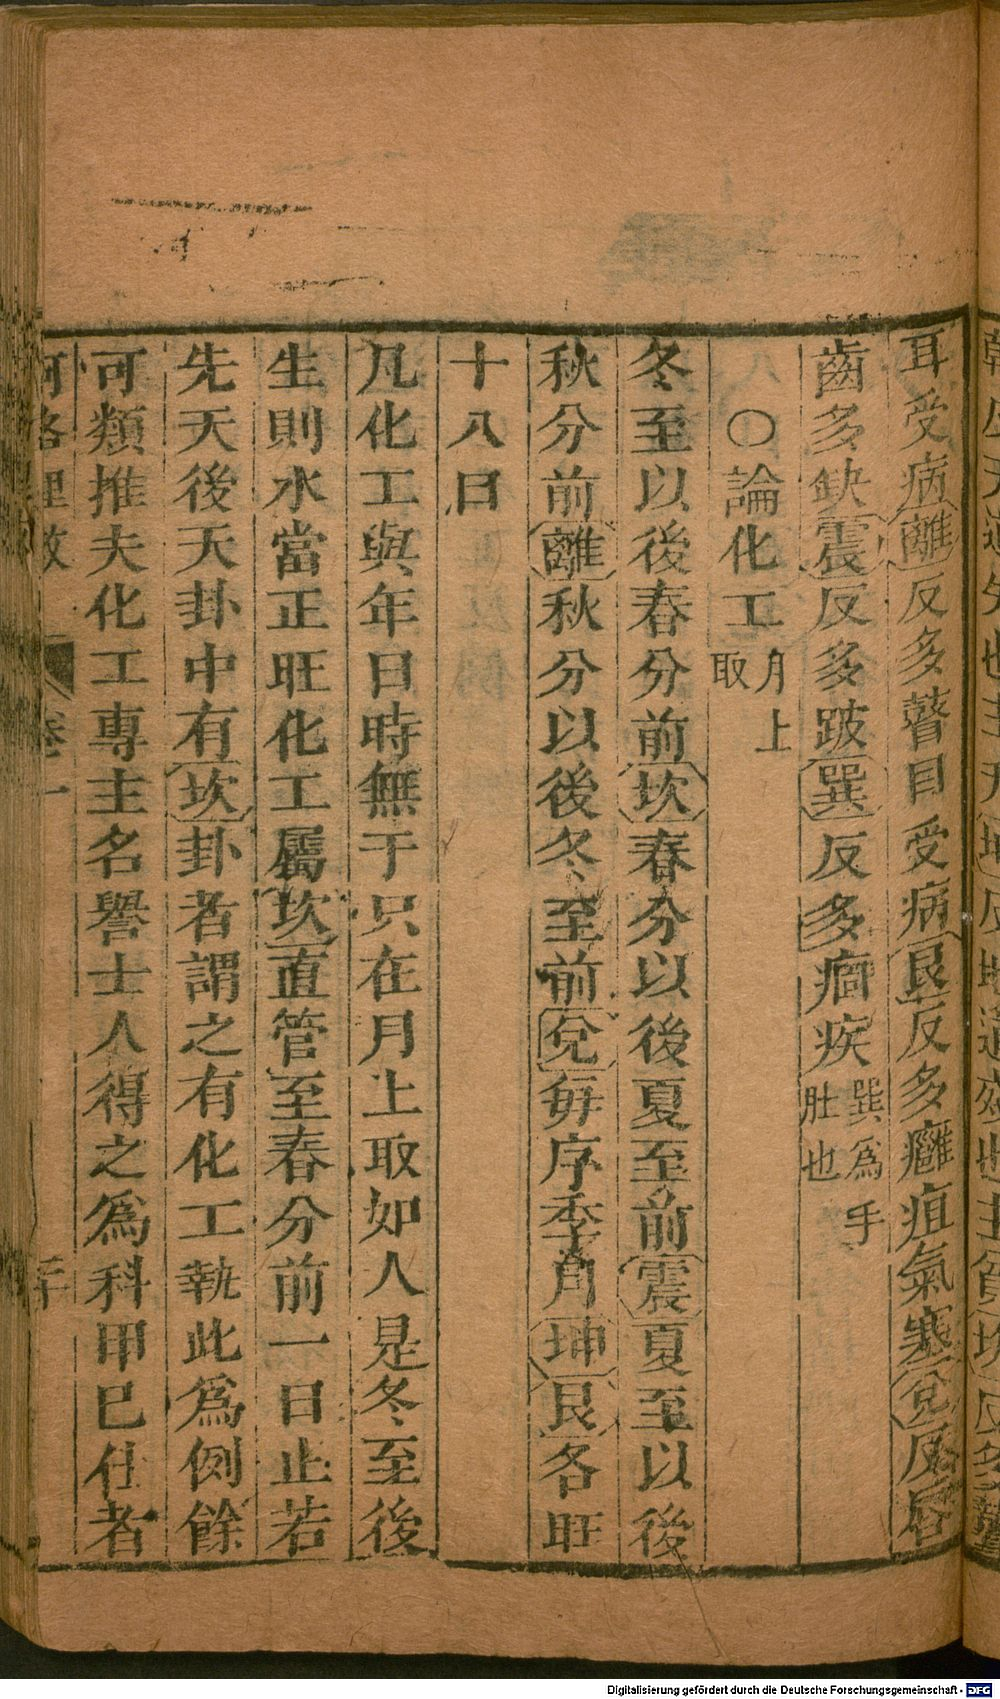 耳受病離反多瞽目受病艮反多癰疽氣塞兌反唇
齒多缺震反多跛巽反多痼疾巽爲手肚也
〇論化工月上取
冬至以後春分前坎春分以後夏至前震夏至以後
秋分前離秋分以後冬至前兌每序季月坤艮各旺
十八日
凡化工與年日時無干只在月上取如人是冬至後
生則水當正旺化工屬坎直管至春分前一日止若
先天後天卦中有坎卦者謂之有化工執此爲例餘
可類推夫化工專主名譽士人得之爲科甲已仕者
河洛理數 卷一
Digitalisierung gefördert durch die Deutsche Forschungsgemeinschaft - DFG